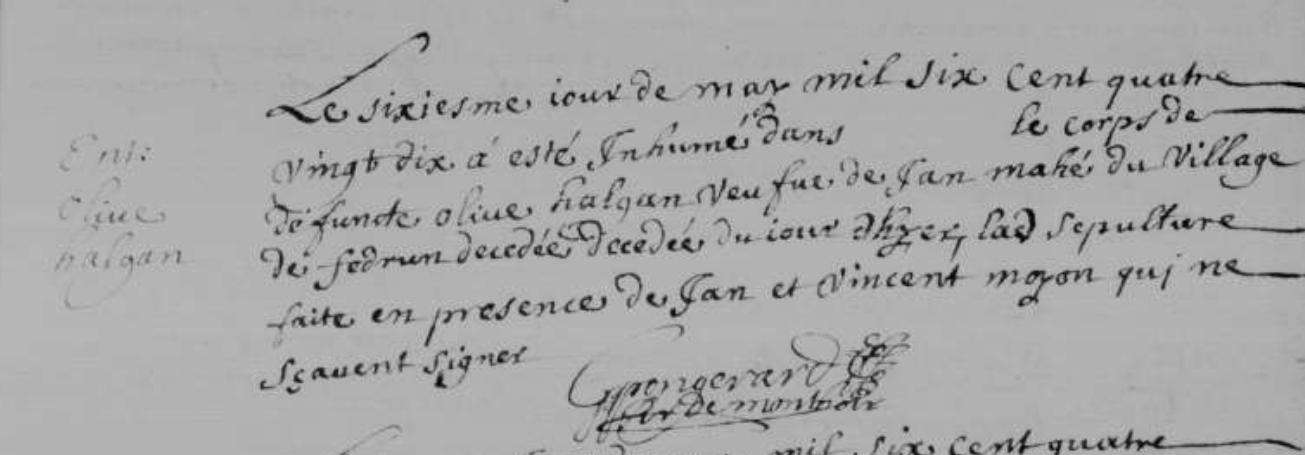 Le sixiesme iour de may mil six cent quatre
Ent:
vingt dix a esté Inhumé dans le corps de
olive
defuncte olive halgan veufue de Jan mahé du village
halgan
de fedrun decedée decedée du iour dhyer, lad sepulture
faite en presence de Jan et vincent moyon qui ne
sçavent signer
de montoir
mil six cent quatre